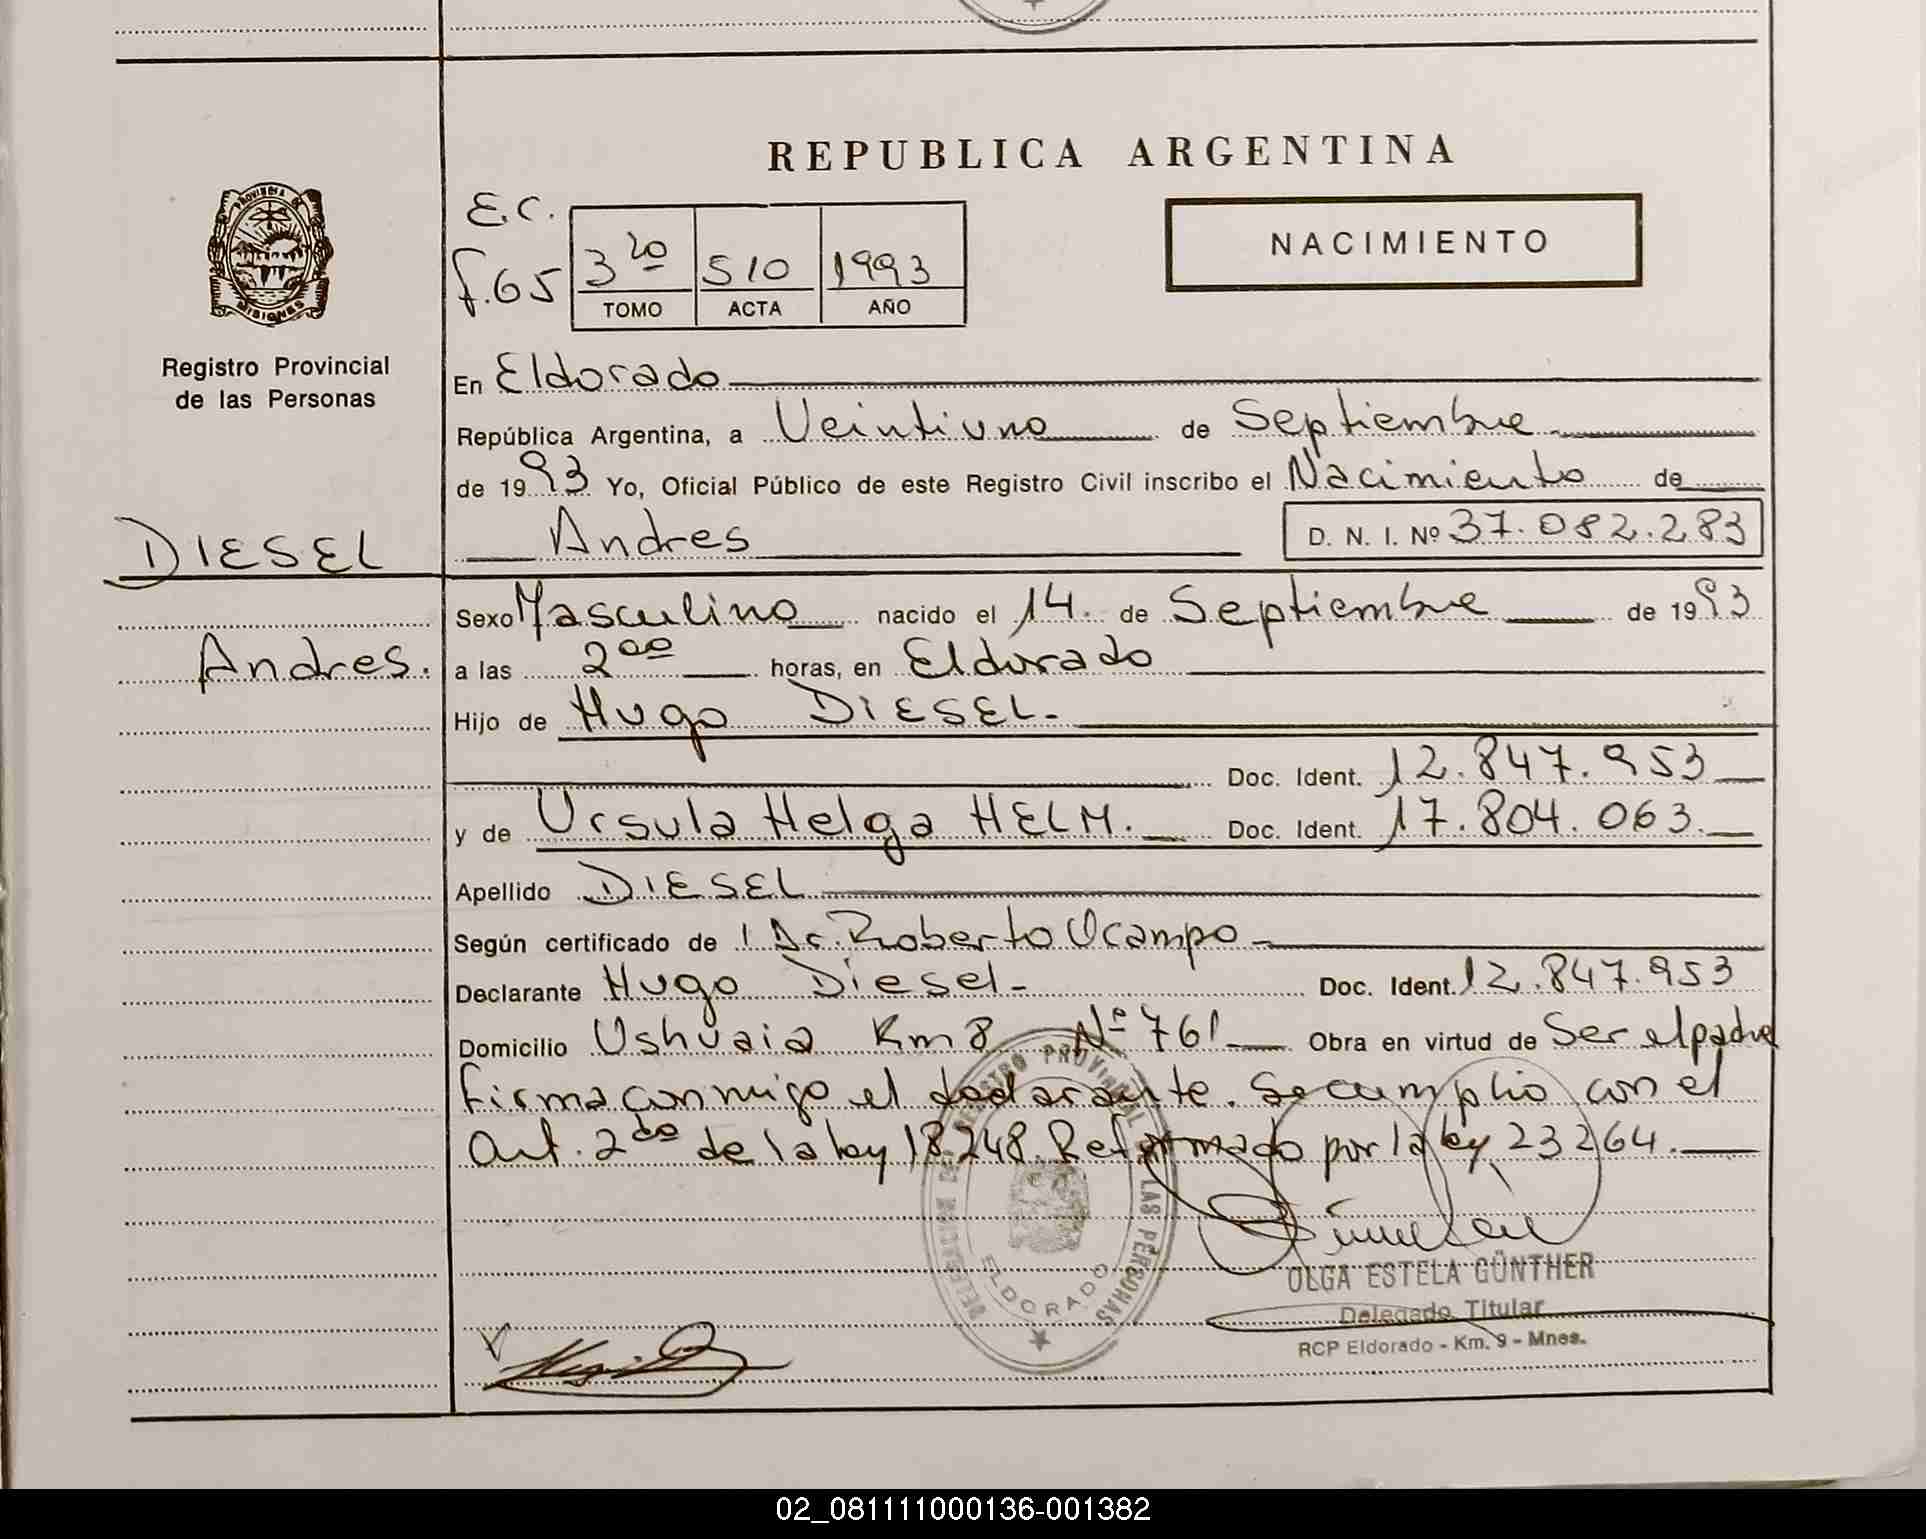 REPUBLICA ARGENTINA
PROVINCIA DE MISIONES
Registro Provincial
de las Personas
E.C.
f.65
3ro 510 1993
TOMO ACTA AÑO
NACIMIENTO
En Eldorado
República Argentina, a Veintiuno de Septiembre
de 1993 Yo, Oficial Público de este Registro Civil inscribo el Nacimiento de
DIESEL
Andres.
Andres D. N. I. Nº 37.082.283
Sexo Masculino nacido el 14. de Septiembre de 1993
a las 2 oo horas, en Eldorado
Hijo de Hugo DIESEL.-
Doc. Ident. 12.847.953
y de Ursula Helga HELM. Doc. Ident. 17.804.063.
Apellido DIESEL
Según certificado de Dr. Roberto Ocampo
Declarante Hugo Diesel.- Doc. Ident. 12.847.953
Domicilio Ushuaia Km 8 Nº 761 Obra en virtud de Ser el padre
firma conmigo el declarante. Se cumplio con el
Art. 2do de la ley 18.248. Reformado por la ley 23264.
REGISTRO PROVINCIAL DE LAS PERSONAS
ELDORADO
OLGA ESTELA GÜNTHER
Delegado Titular
RCP Eldorado - Km. 9 - Mnes.
02_081111000136-001382